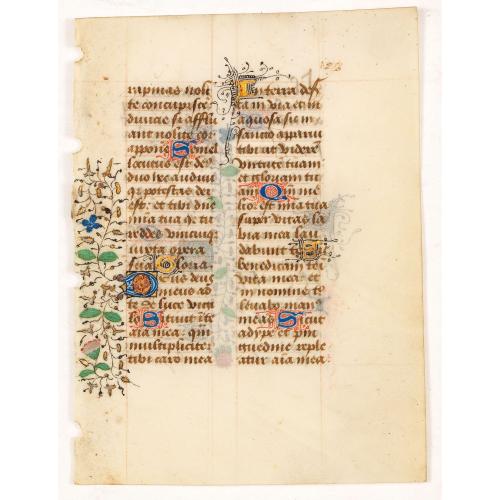 rapinas noli
te concupiscere
divitie si afflu
ant nolite cor
apponere Semel
locutus est deus
duo hec audivi
quia potestas dei
est et tibi domine
misericordia tua quia tu
reddes unicuique
iuxta opera
sua Gloria
Deus deus
meus ad
te de luce vigi
lo Sitivit in te
anima mea quam
multipliciter
tibi caro mea
In terra deser
ta in via et in
aquosa sic in
sancto apparui
tibi ut viderem
virtutem tuam
et gloriam tuam
Quoniam me
lior est misericordia tua
super vitas la
bia mea lau
dabunt te
Sic
benedicam te in
vita mea et
in nomine tuo
levabo manus
meas Sicut
adipe et pin
guedine reple
atur anima mea